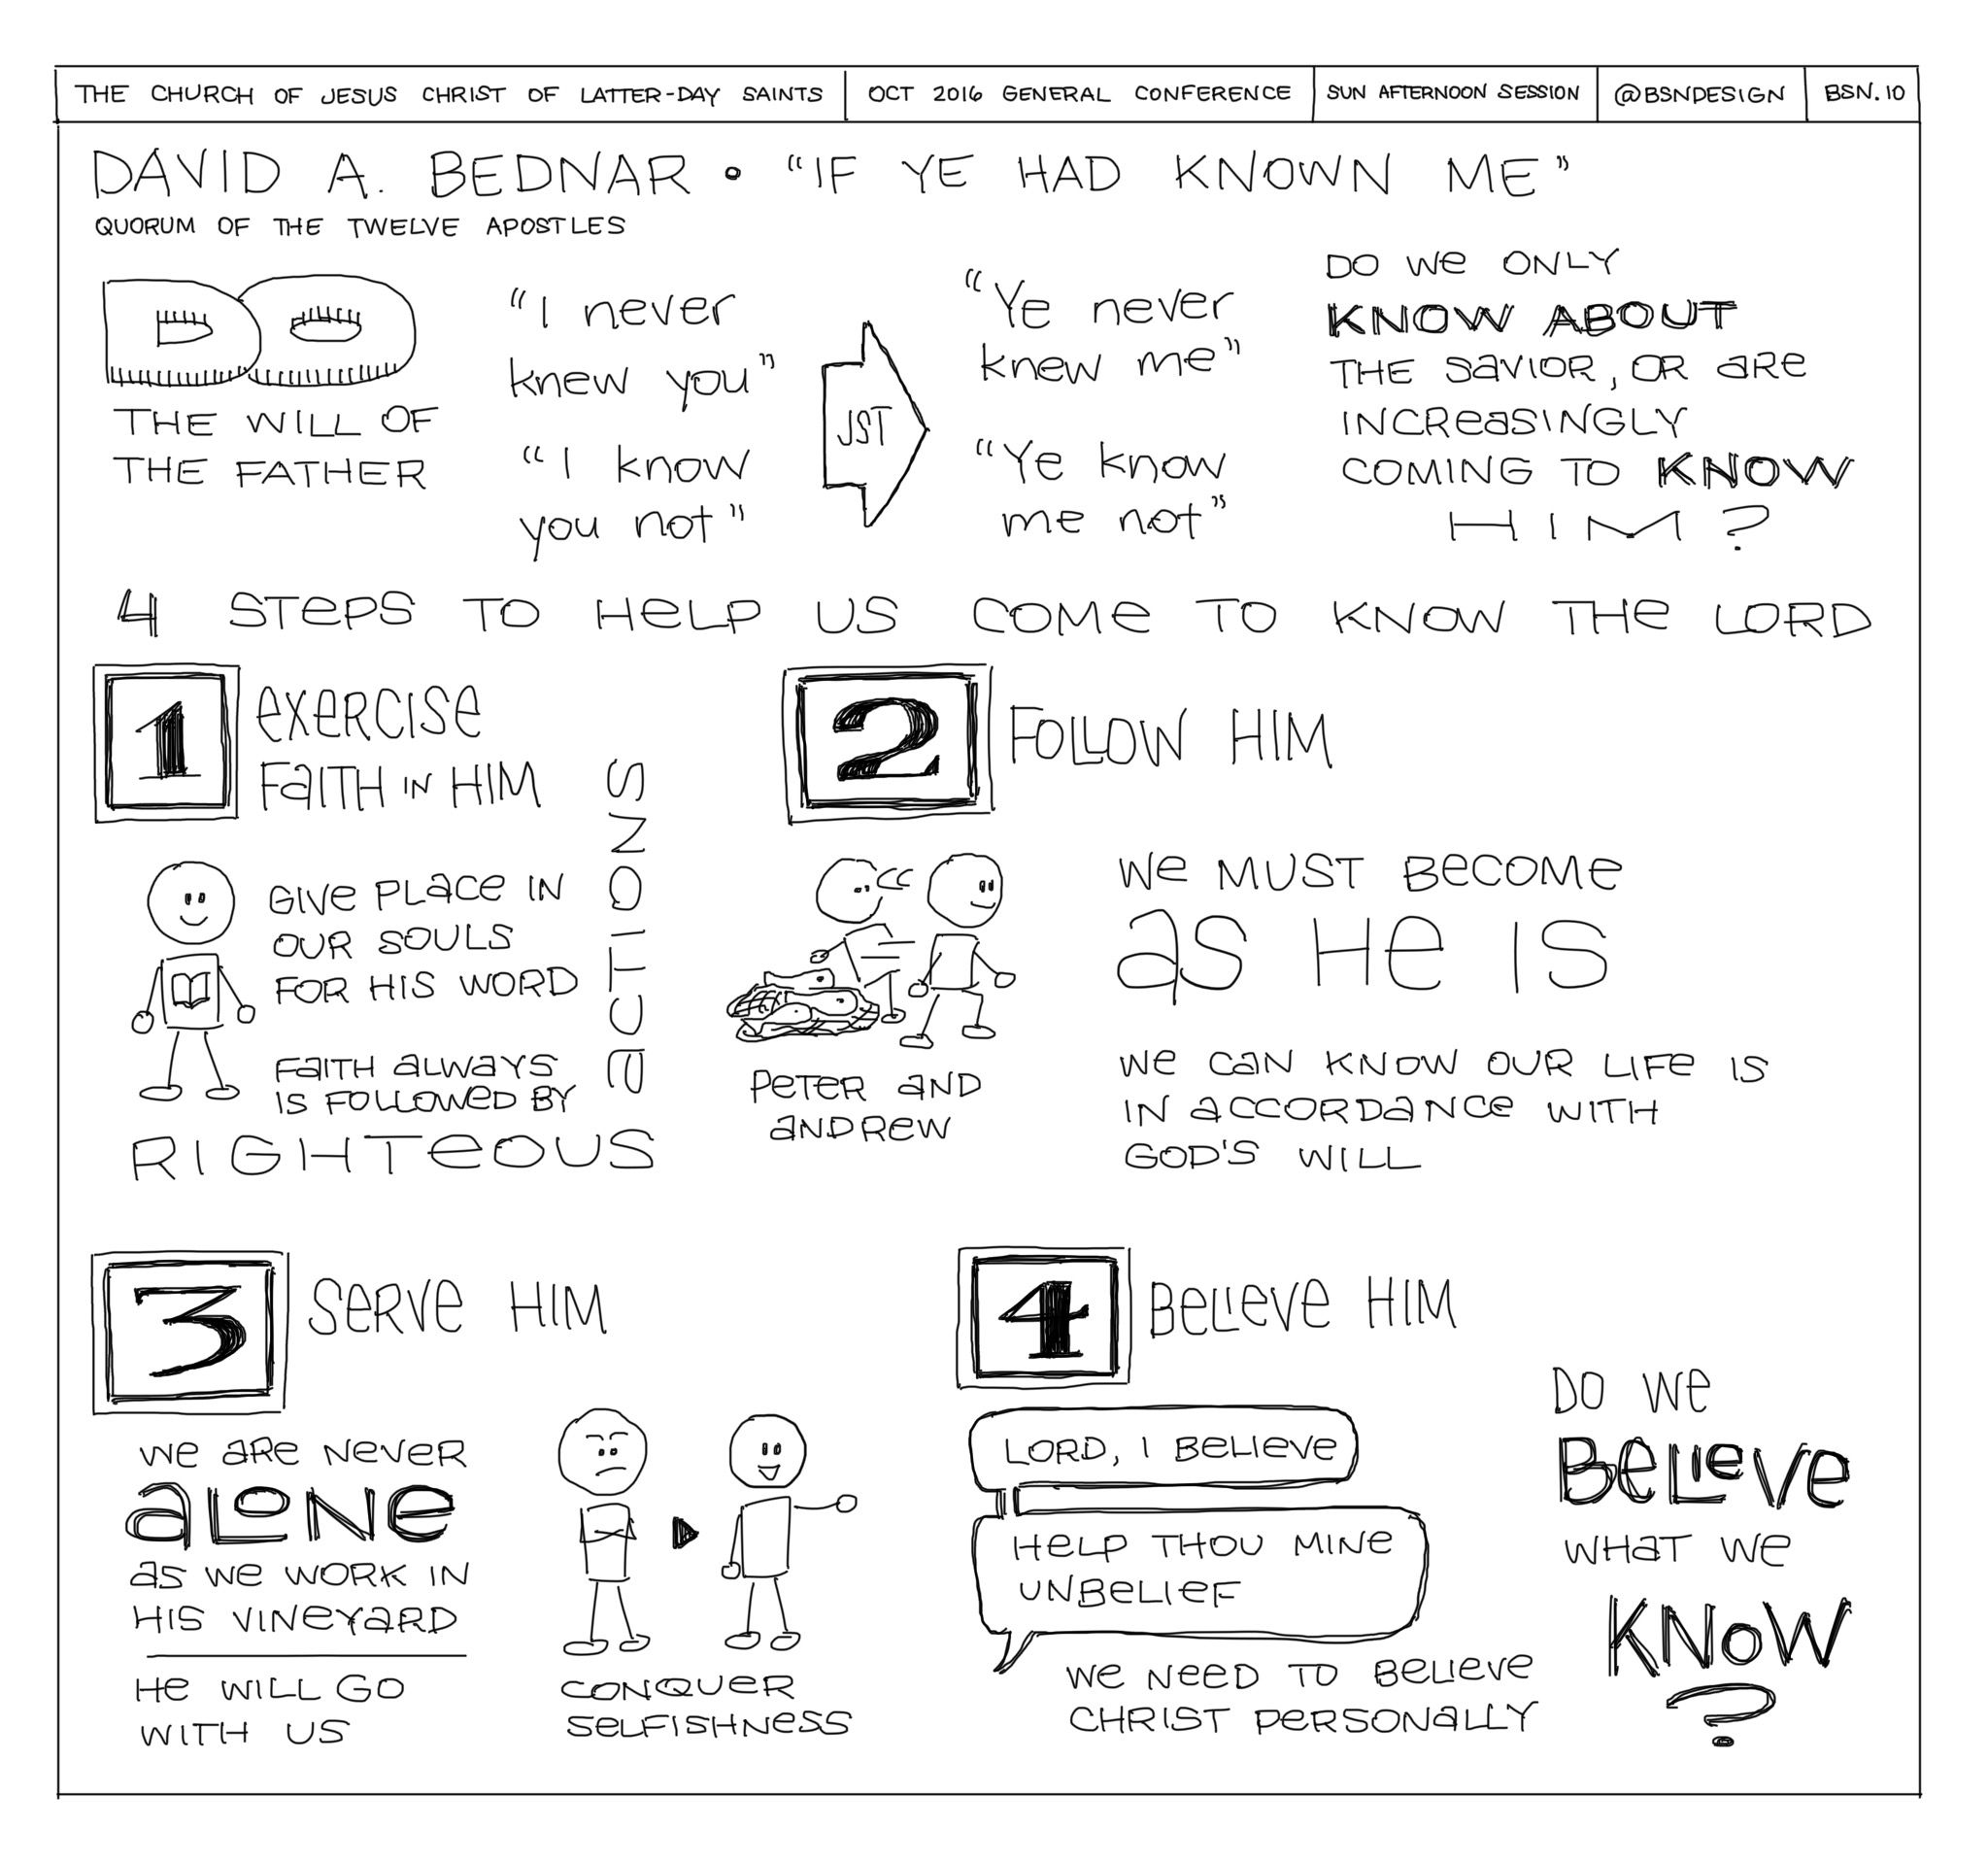 THE CHURCH OF JESUS CHRIST OF LATTER-DAY SAINTS
OCT 2016 GENERAL CONFERENCE
SUN AFTERNOON SESSION
@BSNDESIGN
BSN.10
DAVID A. BEDNAR • "IF YE HAD KNOWN ME"
QUORUM OF THE TWELVE APOSTLES
DO
THE WILL OF
THE FATHER
"I never
knew you"
"I know
you not"
JST
"Ye never
knew me"
"Ye know
me not"
DO We ONLY
KNOW ABOUT
THE SaVIOR, OR aRe
INCReaSINGLY
COMING TO KNOW
HIM?
4 STePS TO HeLP US COMe TO KNOW THe LORD
1
exeRCISe
FaITH IN HIM
GIVe PLaCe IN
OUR SOULS
FOR HIS WORD
FaITH aLWaYS
IS FOLLOWeD BY
RIGHTeOUS
aCTIONS
2
FOLLOW HIM
PeTeR aND
aNDReW
We MUST BeCOMe
aS He IS
We CaN KNOW OUR LIFe IS
IN aCCORDaNCe WITH
GOD'S WILL
3
SeRVe HIM
We aRe NeVeR
aLONe
aS We WORK IN
HIS VINeYaRD
He WILL GO
WITH US
CONQUeR
SeLFISHNeSS
4
BeLIeVe HIM
LORD, I BeLIeVe
HeLP THOU MINe
UNBeLIeF
We NeeD TO BeLIeVe
CHRIST PeRSONaLLY
DO We
BeLIeVe
WHaT We
KNOW
?